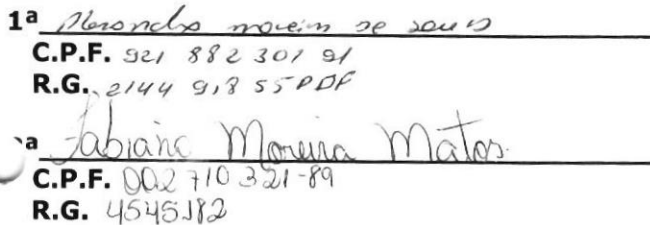 1ª Alexandro moreira de souza
C.P.F. 921 882 301 91
R.G. 2144 918 SSP DF
ª Fabiano Moreira Matos
C.P.F. 002 710 321-89
R.G. 4545182